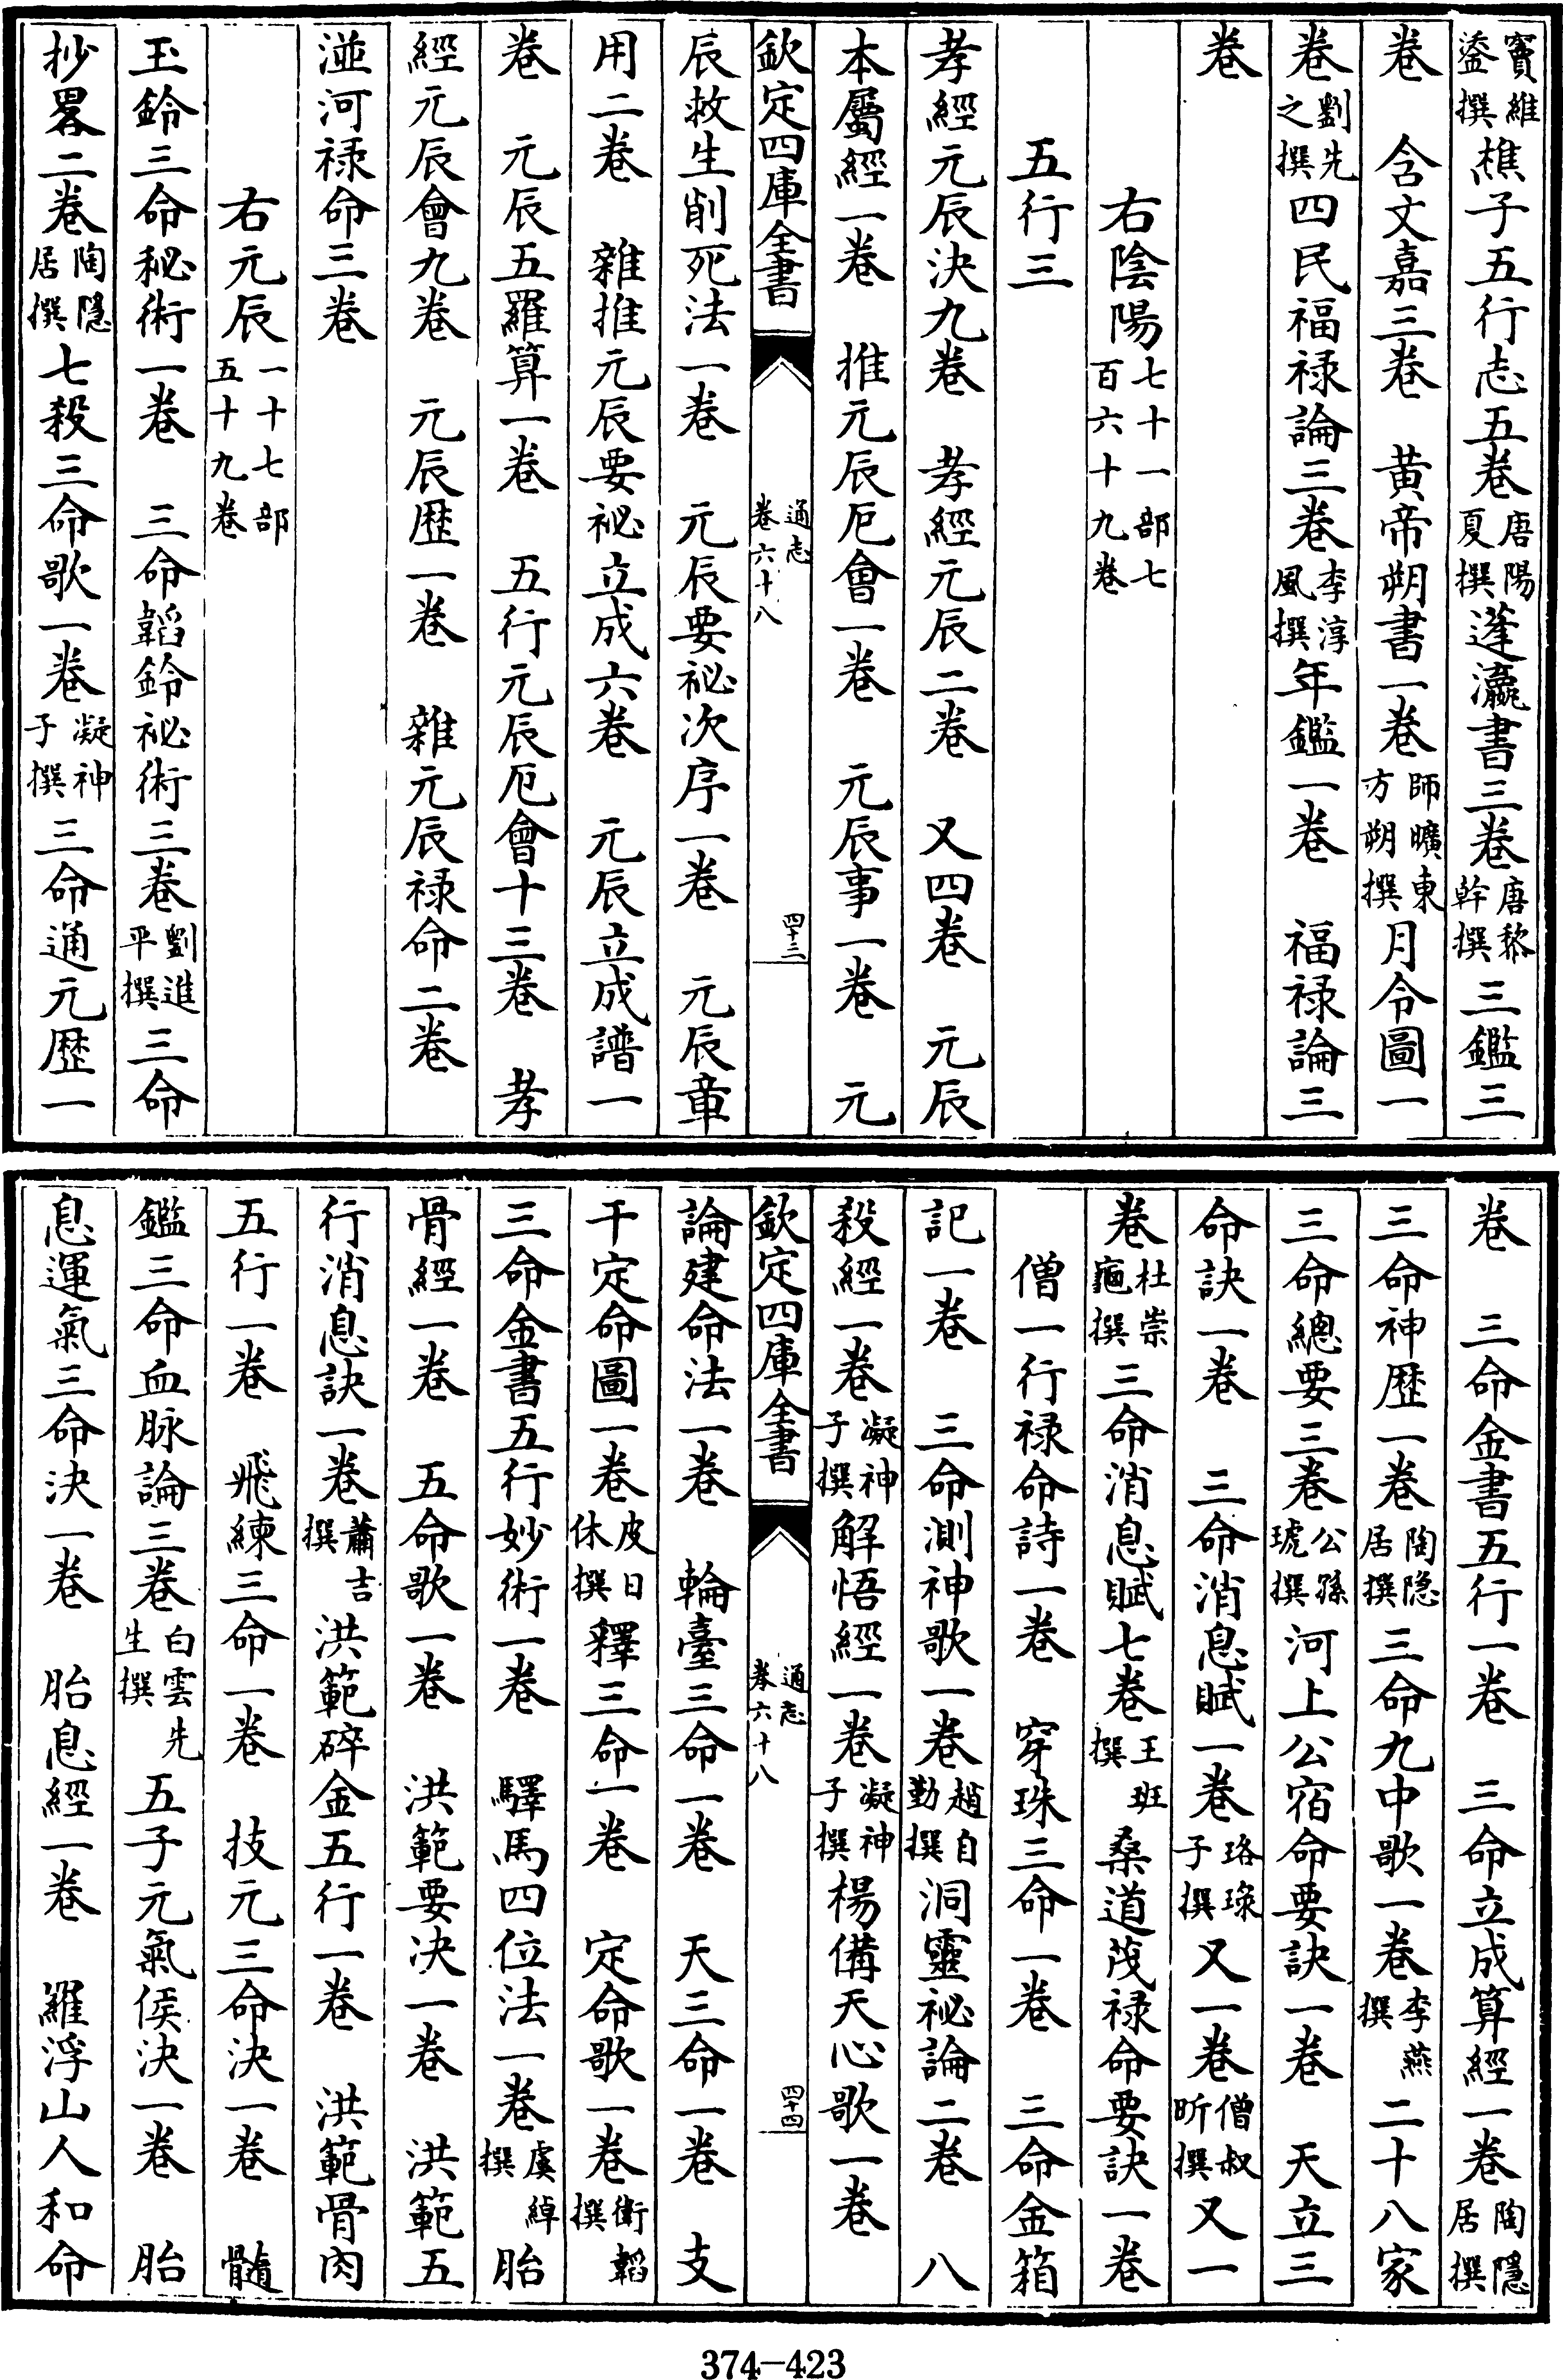 竇維鋈撰樵子五行志五卷唐陽夏撰蓬瀛書三卷唐黎幹撰三鑑三
卷　含文嘉三卷　黄帝朔書一卷師曠東方朔撰月令圖一
卷劉先之撰四民福禄論三卷李淳風撰年鑑一卷　福禄論三
卷
右隂陽七十一部七百六十九卷
五行三
孝經元辰決九卷　孝經元辰二卷　又四卷　元辰
本屬經一卷　推元辰厄會一卷　元辰事一卷　元
欽定四庫全書　通志卷六十八　四十三
辰救生削死法一卷　元辰要祕次序一卷　元辰章
用二卷　雜推元辰要祕立成六卷　元辰立成譜一
卷　元辰五羅算一卷　五行元辰厄會十三卷　孝
經元辰會九卷　元辰歴一卷　雜元辰禄命二卷
湴河禄命三卷
右元辰一十七部五十九卷
玉鈴三命秘術一卷　三命韜鈴祕術三卷劉進平撰三命
抄畧二卷陶隱居撰七殺三命歌一卷凝神子撰三命通元歴一
卷　三命金書五行一卷　三命立成算經一卷陶隱居撰
三命神歴一卷陶隐居撰三命九中歌一卷李燕撰二十八家
三命總要三卷公孫琥撰河上公宿命要訣一卷　天立三
命訣一卷　三命消息賦一卷珞琭子撰又一卷僧叔昕撰又一
卷杜崇龜撰三命消息賦七卷王班撰桑道茂禄命要訣一卷
僧一行禄命詩一卷　穿珠三命一卷　三命金箱
記一卷　三命測神歌一卷趙自勤撰洞靈祕論二卷　八
殺經一卷凝神子撰解悟經一卷凝神子撰楊備天心歌一卷
欽定四庫全書　通志卷六十八　四十四
論建命法一卷　輪臺三命一卷　天三命一卷　支
干定命圖一卷皮日休撰釋三命一卷　定命歌一卷衛韜撰
三命金書五行妙術一卷　驛馬四位法一卷虞綽撰胎
骨經一卷　五命歌一卷　洪範要决一卷　洪範五
行消息訣一卷蕭吉撰洪範碎金五行一卷　洪範骨肉
五行一卷　飛練三命一卷　技元三命决一卷　髓
鑑三命血脉論三卷白雲先生撰五子元氣侯決一卷　胎
息運氣三命決一卷　胎息經一卷　羅浮山人和命
374-423